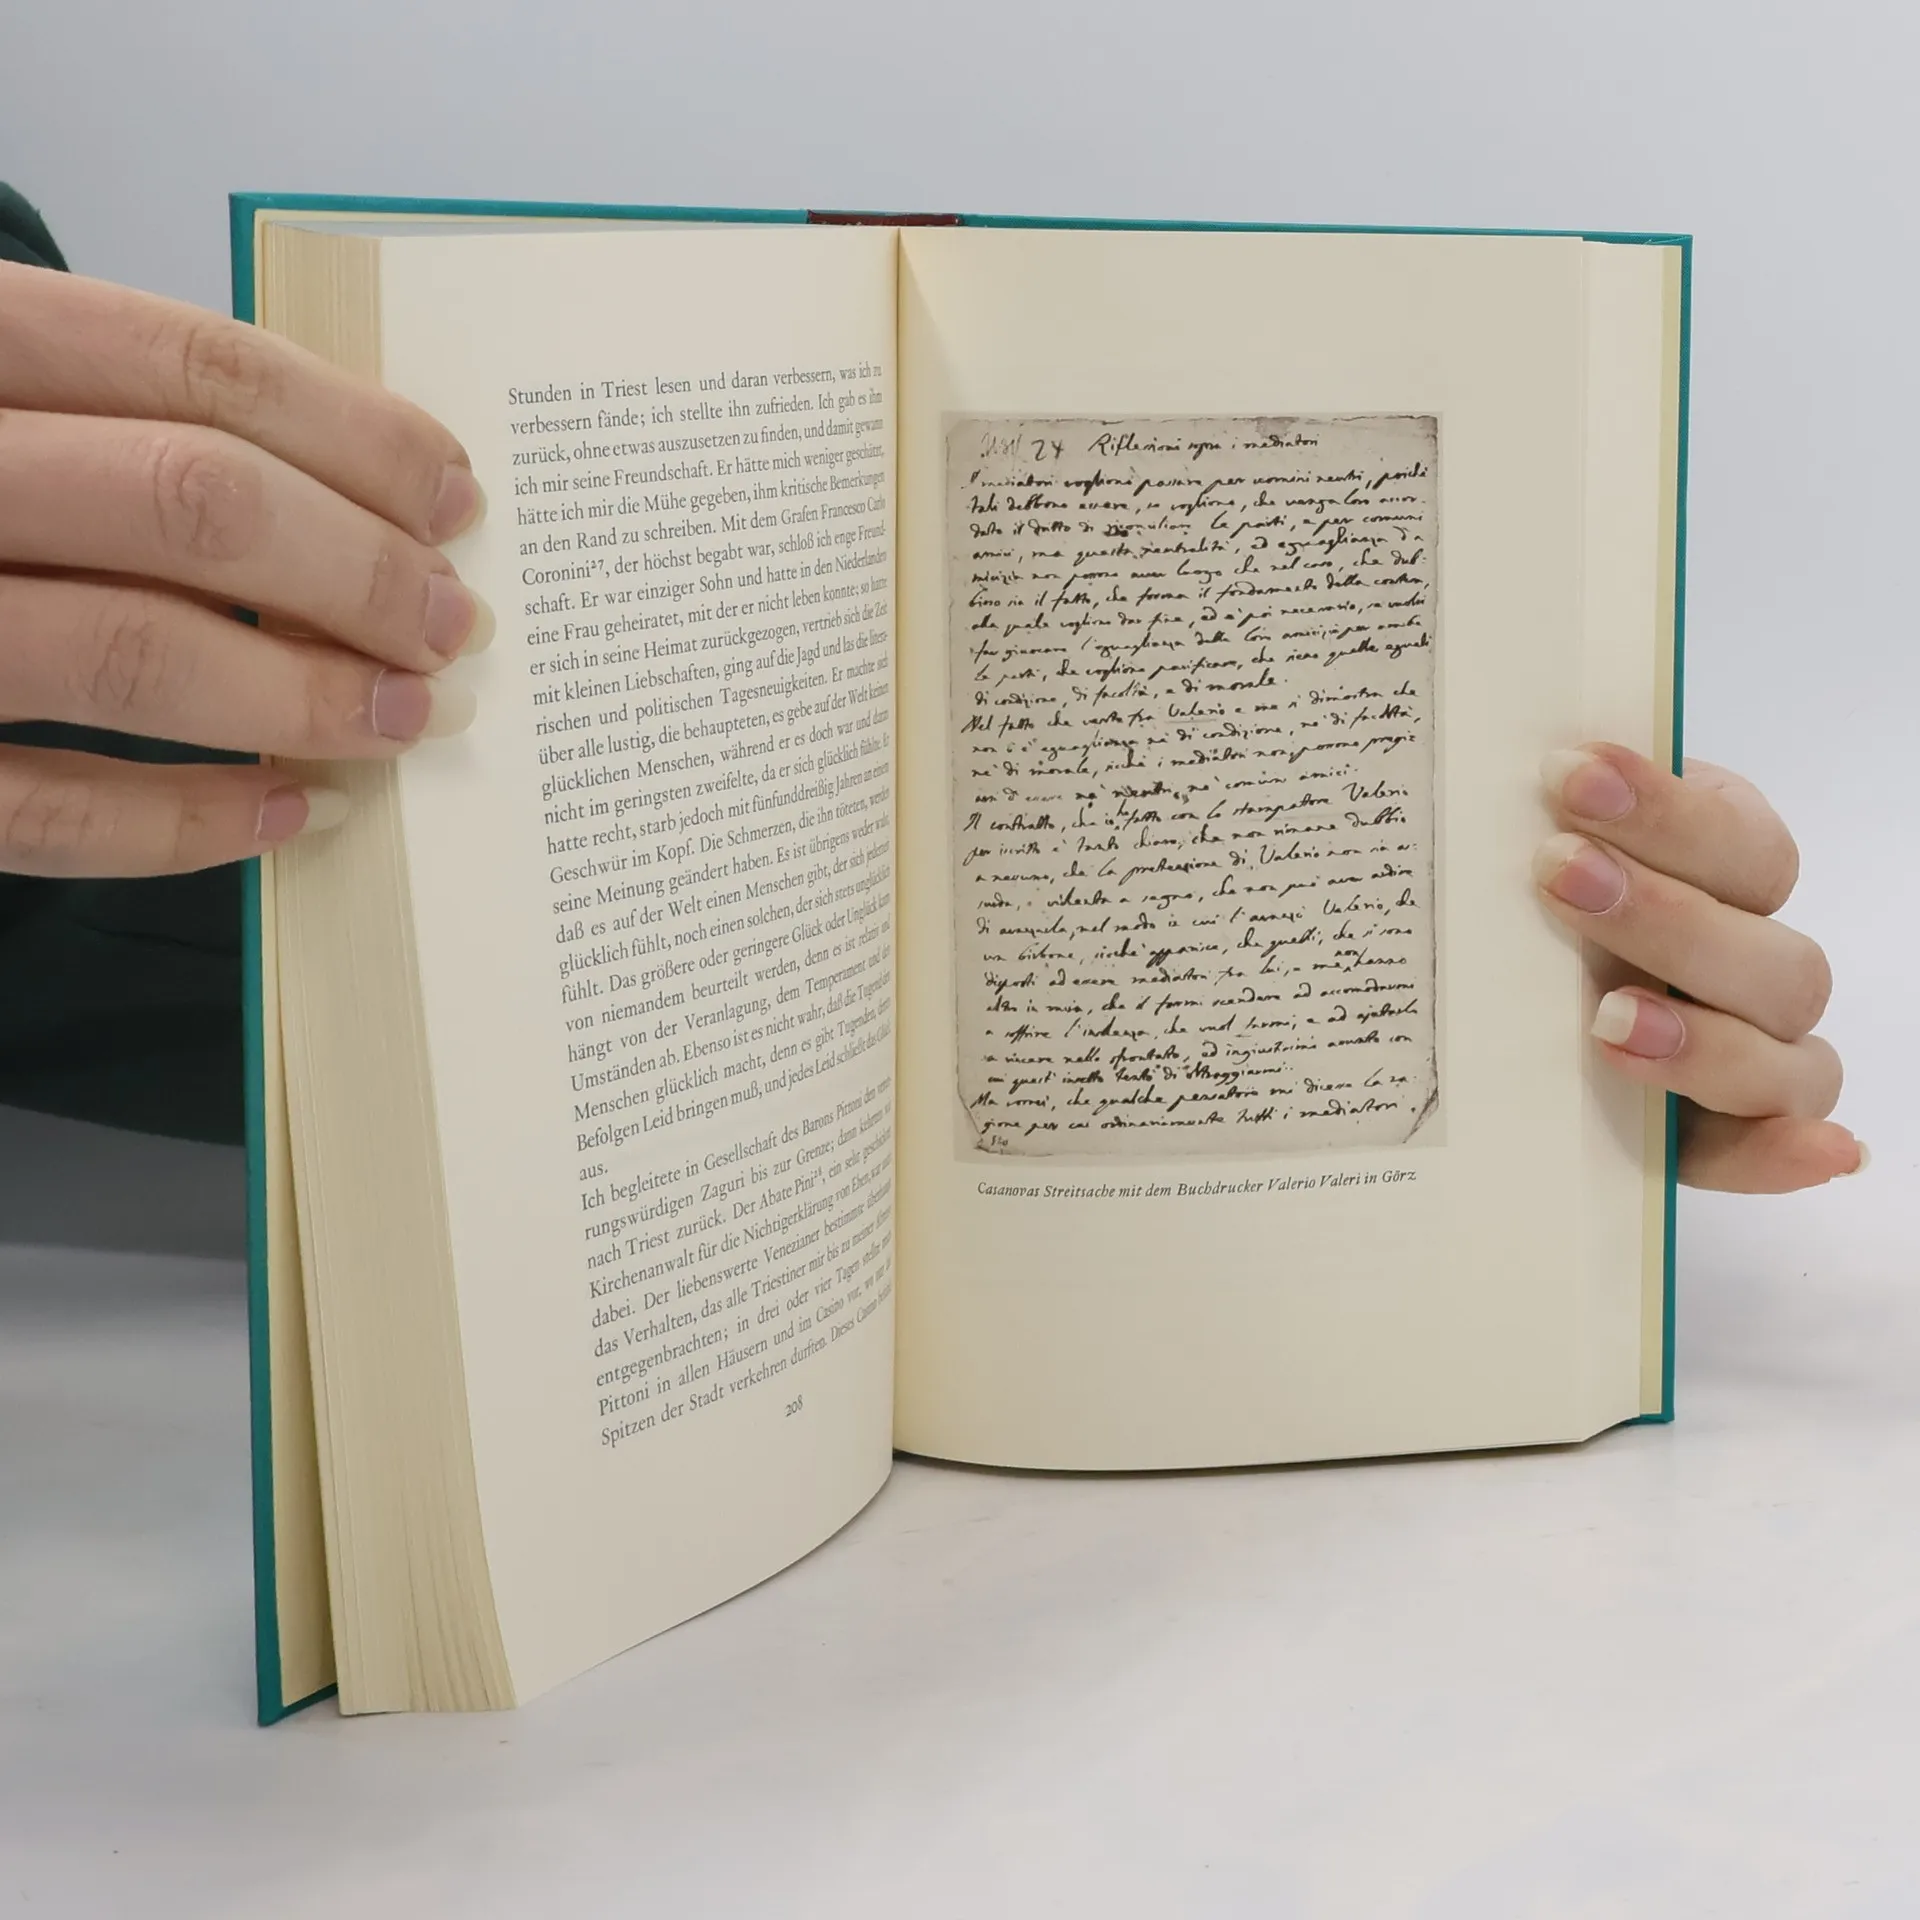 Stunden in Triest lesen und daran verbessern, was ich zu
verbessern fände; ich stellte ihn zufrieden. Ich gab es ihm
zurück, ohne etwas auszusetzen zu finden, und damit gewann
ich mir seine Freundschaft. Er hätte mich weniger geschätzt,
hätte ich mir die Mühe gegeben, ihm kritische Bemerkungen
an den Rand zu schreiben. Mit dem Grafen Francesco Carlo
Coronini²⁷, der höchst begabt war, schloß ich enge Freund-
schaft. Er war einziger Sohn und hatte in den Niederlanden
eine Frau geheiratet, mit der er nicht leben konnte; so hatte
er sich in seine Heimat zurückgezogen, vertrieb sich die Zeit
mit kleinen Liebschaften, ging auf die Jagd und las die litera-
rischen und politischen Tagesneuigkeiten. Er machte sich
über alle lustig, die behaupteten, es gebe auf der Welt keinen
glücklichen Menschen, während er es doch war und daran
nicht im geringsten zweifelte, da er sich glücklich fühlte. Er
hatte recht, starb jedoch mit fünfunddreißig Jahren an einem
Geschwür im Kopf. Die Schmerzen, die ihn töteten, werden
seine Meinung geändert haben. Es ist übrigens weder wahr,
daß es auf der Welt einen Menschen gibt, der sich jederzeit
glücklich fühlt, noch einen solchen, der sich stets unglücklich
fühlt. Das größere oder geringere Glück oder Unglück kann
von niemandem beurteilt werden, denn es ist relativ und
hängt von der Veranlagung, dem Temperament und den
Umständen ab. Ebenso ist es nicht wahr, daß die Tugend den
Menschen glücklich macht, denn es gibt Tugenden, deren
Befolgen Leid bringen muß, und jedes Leid schließt das Glück
aus.
Ich begleitete in Gesellschaft des Barons Pittoni den vereh-
rungswürdigen Zaguri bis zur Grenze; dann kehrten wir
nach Triest zurück. Der Abate Pini²⁸, ein sehr geschickter
Kirchenanwalt für die Nichtigerklärung von Ehen, war auch
dabei. Der liebenswerte Venezianer bestimmte überhaupt
das Verhalten, das alle Triestiner mir bis zu meiner Abreise
entgegenbrachten; in drei oder vier Tagen stellte mich
Pittoni in allen Häusern und im Casino vor, wo nur die
Spitzen der Stadt verkehren durften. Dieses Casino befand
208
24 Riflessioni sopra i mediatori
I mediatori vogliono passare per uomini neutri, poichè
tali debbono essere, se vogliono, che venga loro accor-
dato il dritto di riconciliare le parti, e per comuni
amici, ma questa neutralità, ed eguaglianza d'a
micizia non possono aver luogo che nel caso, che dub-
bioso sia il fatto, che forma il fondamento della contesa,
alla quale vogliono dar fine, ed è poi necessario, se vuolsi
far giuocare l'eguaglianza della loro amicizia per ambe
le parti, che vogliono pacificare, che sieno quelle eguali
di condizione, di facoltà, e di morale.
Nel fatto che verte fra Valerio e me si dimostra che
non v'è eguaglianza nè di condizione, nè di facoltà,
nè di morale, sicchè i mediatori non possono pregi
arsi d'essere nè neutri, nè comuni amici.
Il contratto, che io ho fatto con lo stampatore Valerio
per iscritto è tanto chiaro, che non rimane dubbio
a nessuno, che la pretensione di Valerio non sia as-
surda, e violenta a segno, che non può aver ardire
di avanzarla, nel modo in cui l'avanzò Valerio, che
un birbone, sicchè apparisce, che quelli, che si sono
disposti ad essere mediatori fra lui, e me non hanno
altro in mira, che il farmi scendere ad accomodarmi
a soffrire l'insolenza, che vuol farmi, e ad ajutarlo
a riescire nello sfrontato, ed ingiustissimo assunto con
cui quest' insetto tentò di oltraggiarmi.
Ma vorrei, che qualche pensatore mi dicesse la ra-
gione per cui ordinariamente tutti i mediatori
Casanovas Streitsache mit dem Buchdrucker Valerio Valeri in Görz